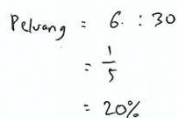 Peluang = 6 : 30
= 1/5
= 20%